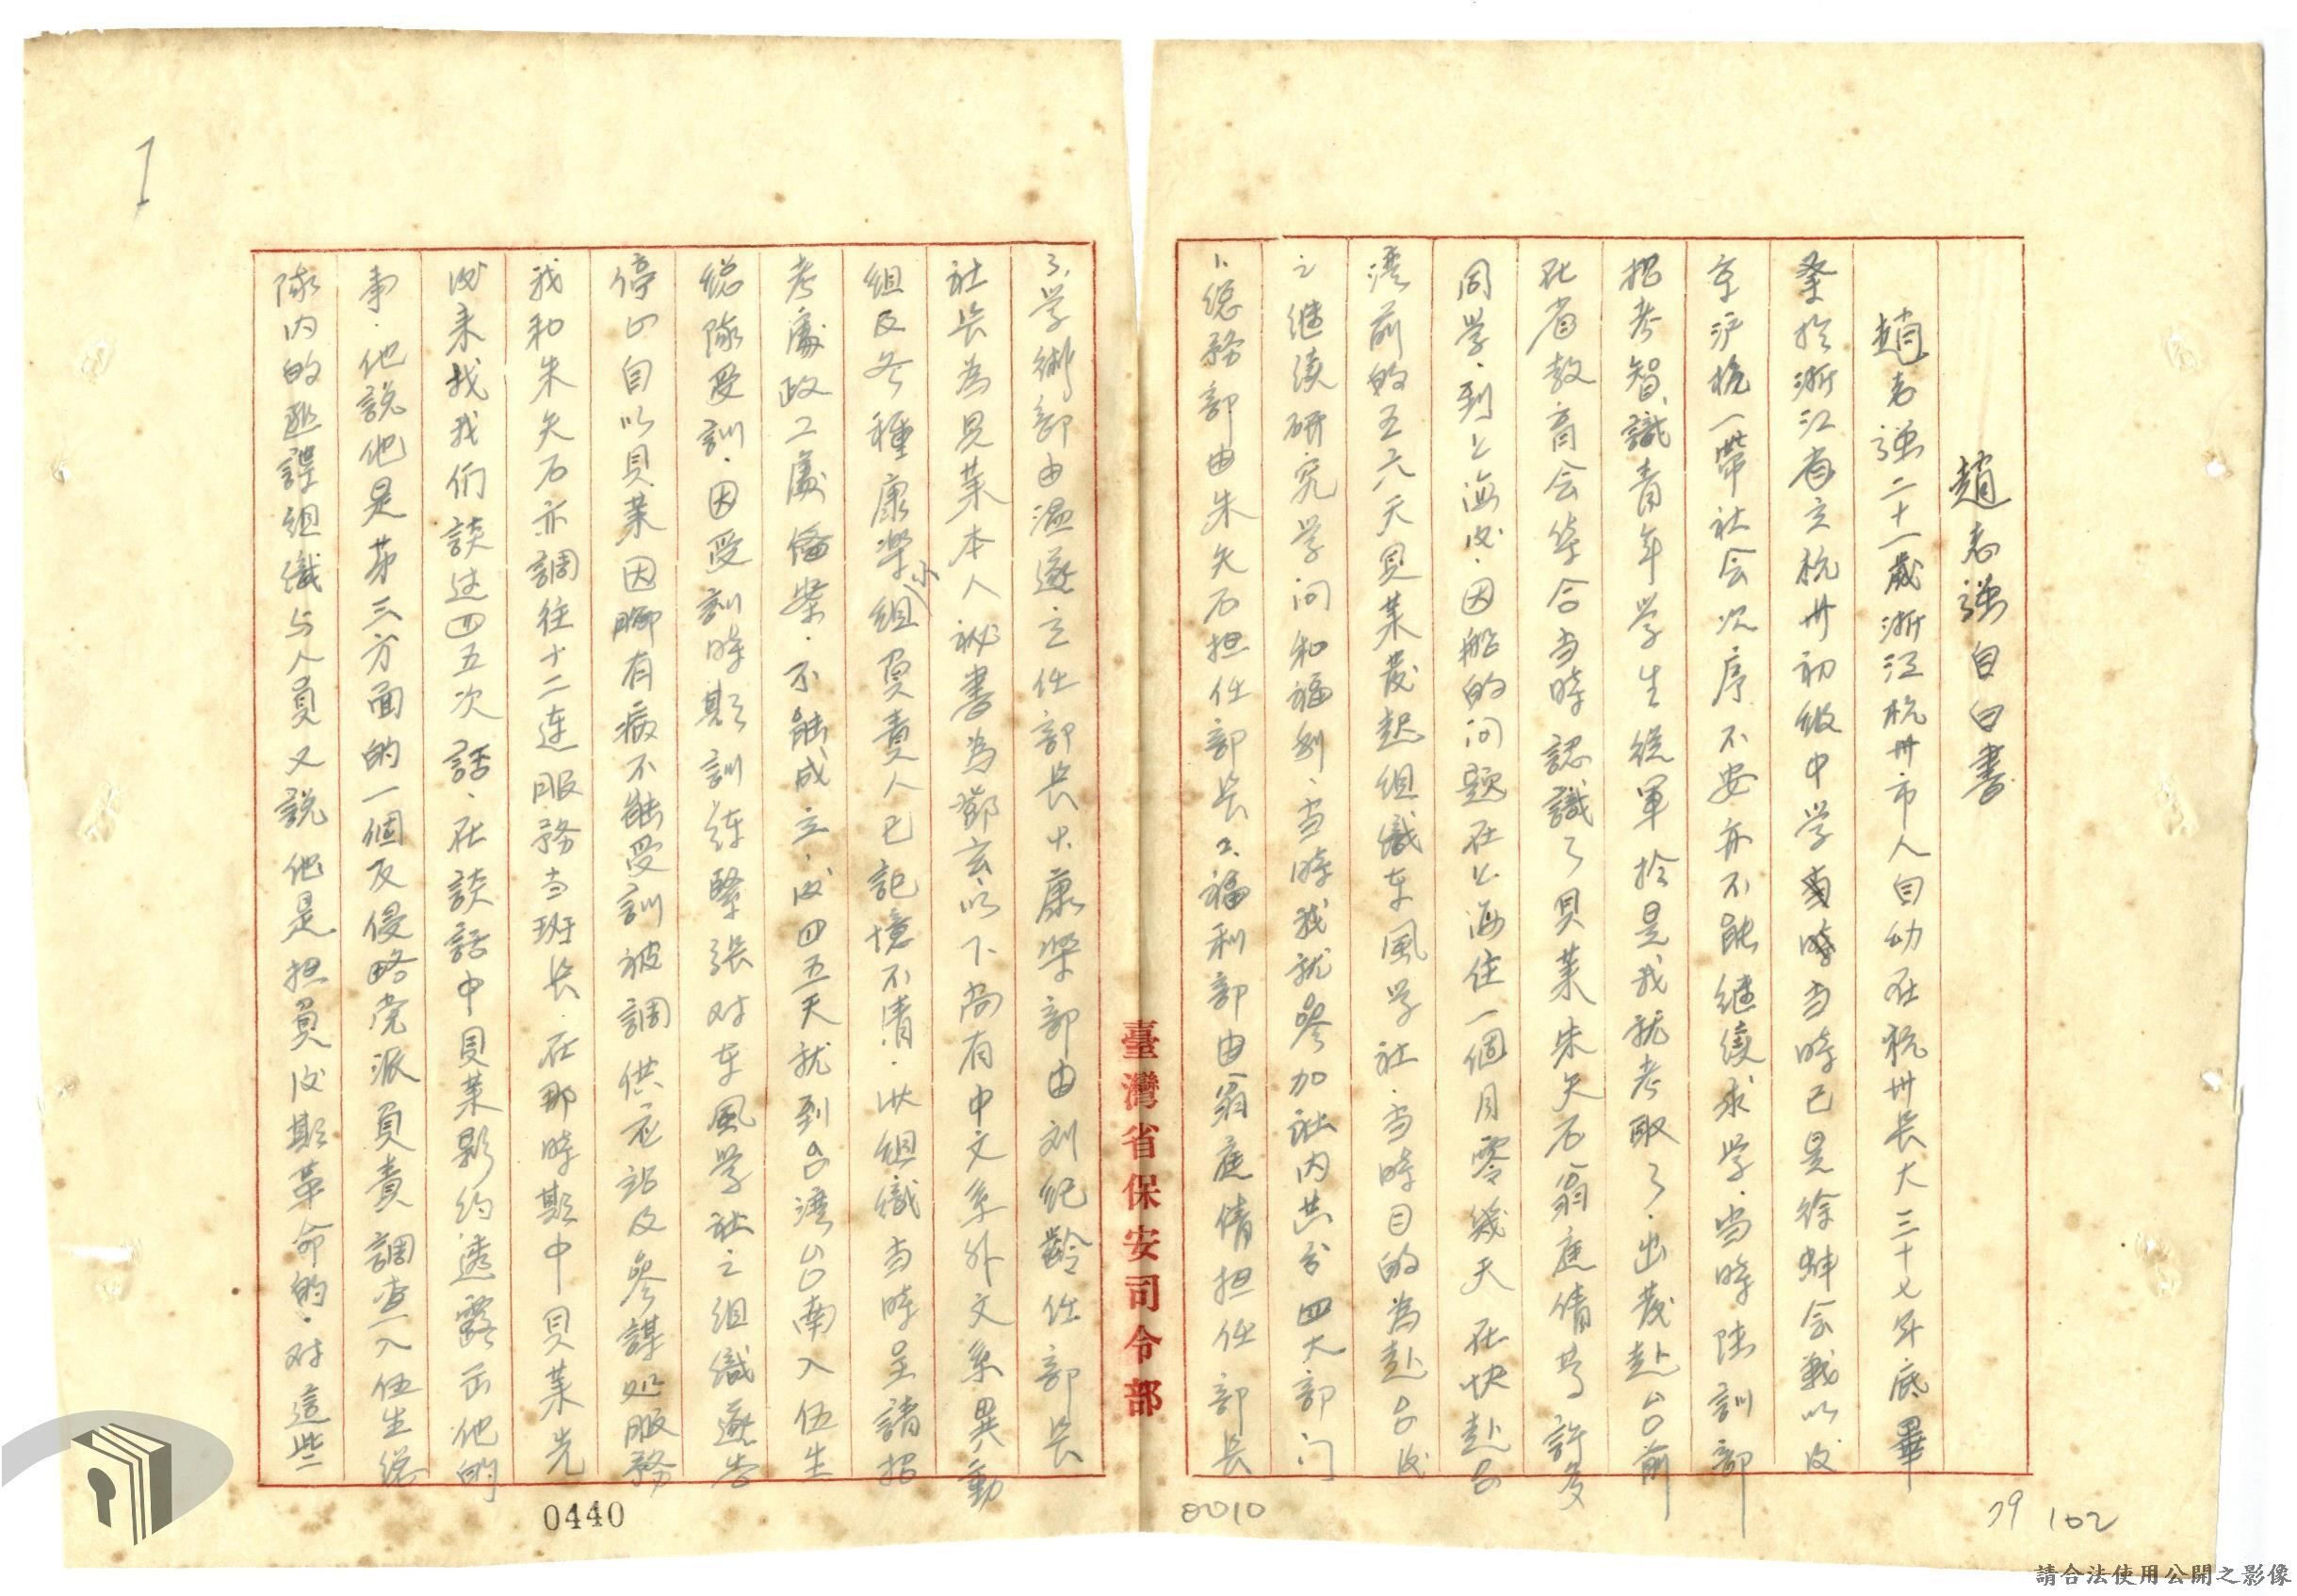 趙志強自白書
趙志強二十一歲浙江杭州市人自幼在杭州長大三十七年底畢
業於浙江省立杭州初級中学當時已是徐蚌会戰以後
京沪杭一帶社会次序不安亦不能継續求学.当時陸訓部
招考智識青年学生從軍於是我就考取了.出發赴台前
在省教育会集合当時認識了貝萊朱矢石翁庭倩等許多
同学.到上海後.因船的问题在上海住一個月零幾天在快赴台
湾前的五六天貝萊發起組織东風学社.当時目的為赴台後
之継续研究学问和福利.当時我就參加社内共分四大部门
1.總務部由朱矢石担任部長2.福利部由翁庭倩担任部長
3.学術部由温遂之任部長4.康樂部由刘纪齡任部長
社長為貝萊本人祕書為鄧玄以下尚有中文系外文系異動
組及各種康樂小組負責人已記憶不清.洪組織当時呈請招
考處政工處備案.不能成立.後四五天就到台湾台南入伍生
總隊受訓.因受訓時期訓練緊張对东風学社之組織遂告
停止自以貝萊因脚有病不能受訓被調供应站及參謀処服務
我和朱矢石亦調往十二連服務当班長.在那時期中貝萊先
後来找我们談过四五次話.在談話中貝萊影约透露出他的
事.他說他是第三方面的一個反侵略党派負責調查入伍生總
隊内的匪諜組織与人員又說他是担負後期革命的.对這些
臺灣省保安司令部
0440
0010
79 102
請合法使用公開之影像